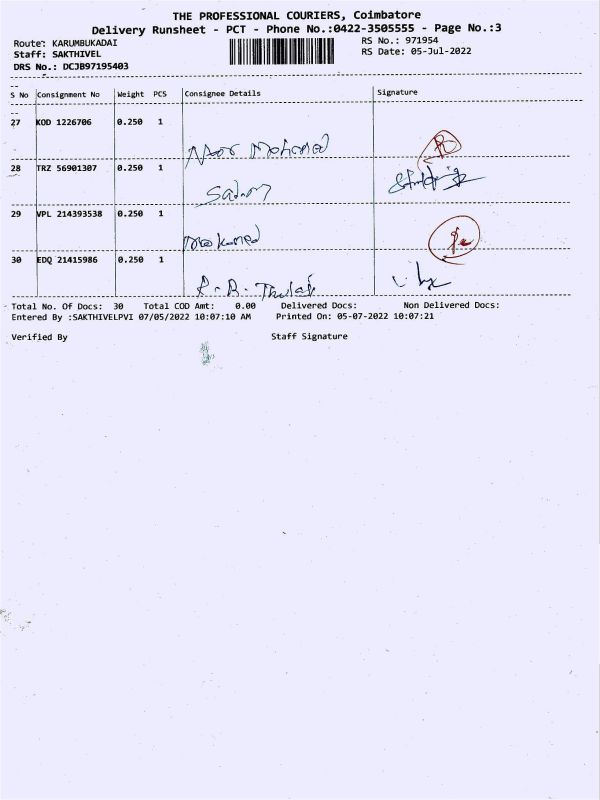 THE PROFESSIONAL COURIERS, Coimbatore
Delivery Runsheet - PCT - Phone No.:0422-3505555 - Page No.:3
Route: KARUMBUKADAI
RS No.: 971954
Staff: SAKTHIVEL
RS Date: 05-Jul-2022
DRS No.: DCJB97195403
S No Consignment No Weight PCS Consignee Details Signature
27 KOD 1226706 0.250 1
Noor Mohamed
28 TRZ 56901307 0.250 1
29 VPL 214393538 0.250 1
30 EDQ 21415986 0.250 1
Total No. Of Docs: 30 Total COD Amt: 0.00 Delivered Docs: Non Delivered Docs:
Entered By :SAKTHIVELPVI 07/05/2022 10:07:10 AM Printed On: 05-07-2022 10:07:21
Verified By Staff Signature